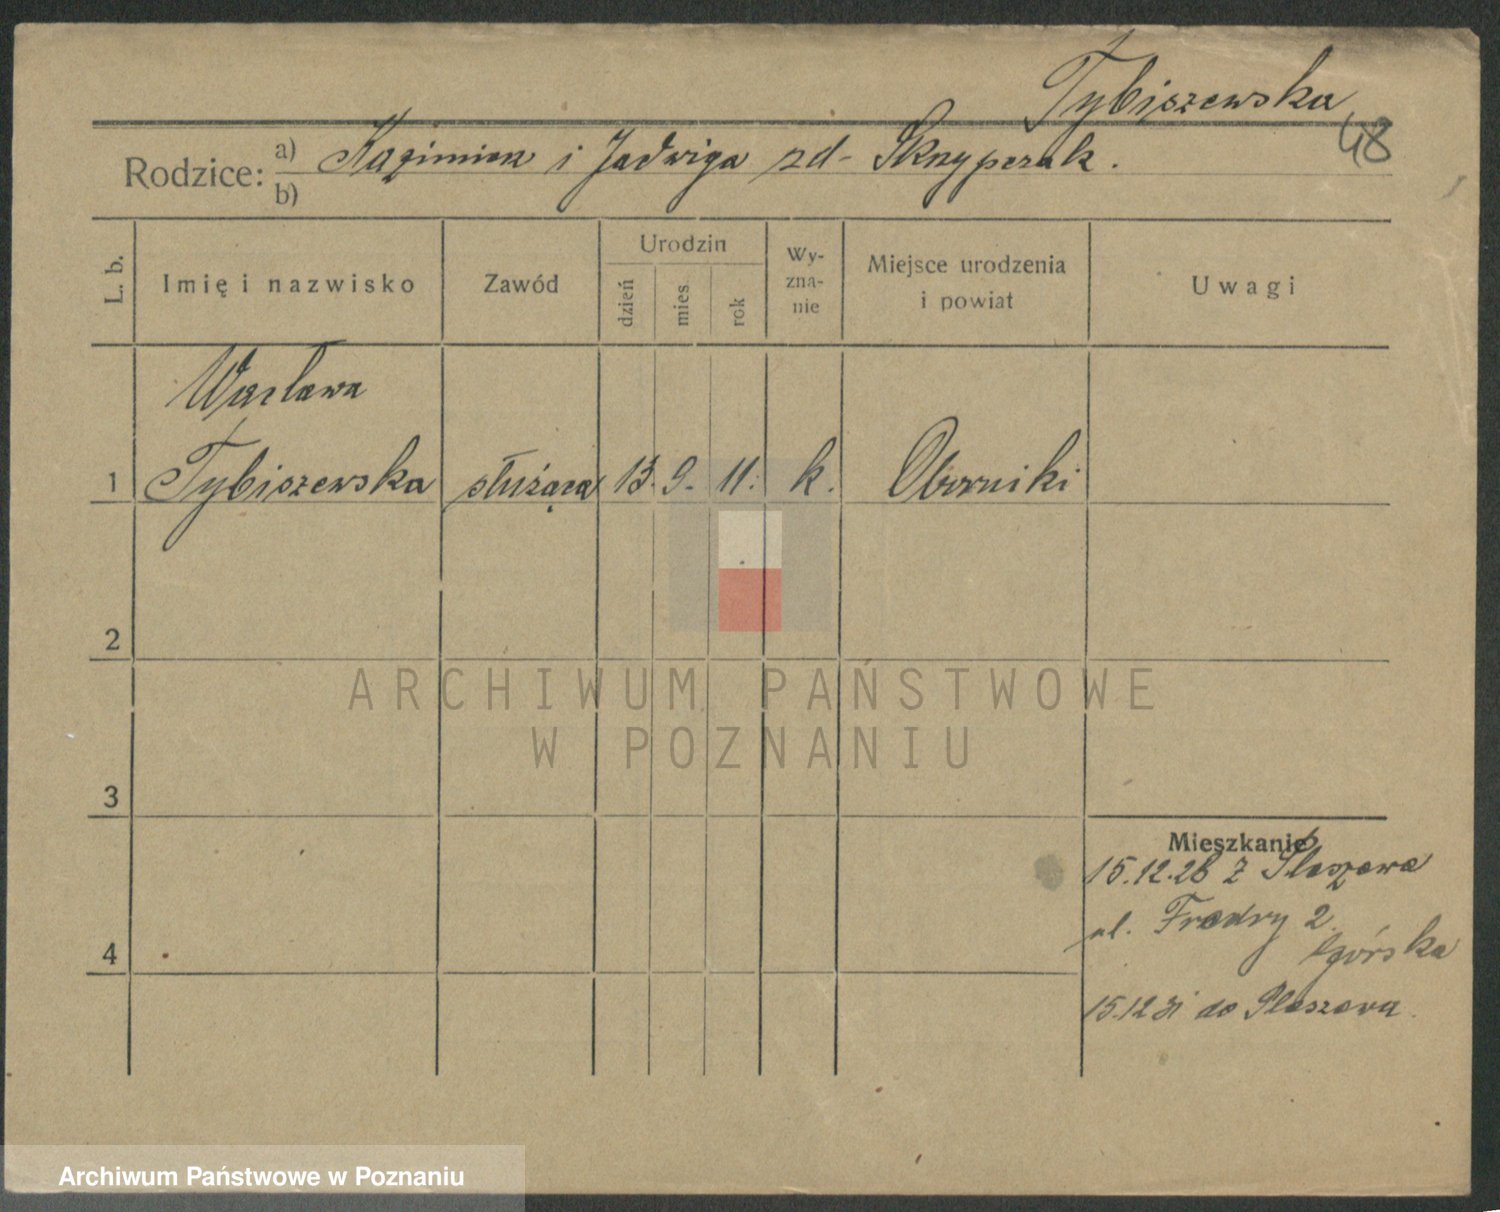 Tybiszewska
48
Rodzice: a) Kazimierz i Jadwiga zd- Skrzypczak.
b)
L. b. Imię i nazwisko Zawód Urodzin dzień mies. rok Wy-zna-nie Miejsce urodzenia i powiat Uwagi
Wacława
1 Tybiszewska służąca 13. 9. 11. k. Oborniki
2
3
Mieszkanie
15.12.28 z Pleszewa
ul. Fredry 2.
4
15.12 31 do Pleszewa.
ARCHIWUM PAŃSTWOWE
W POZNANIU
Archiwum Państwowe w Poznaniu